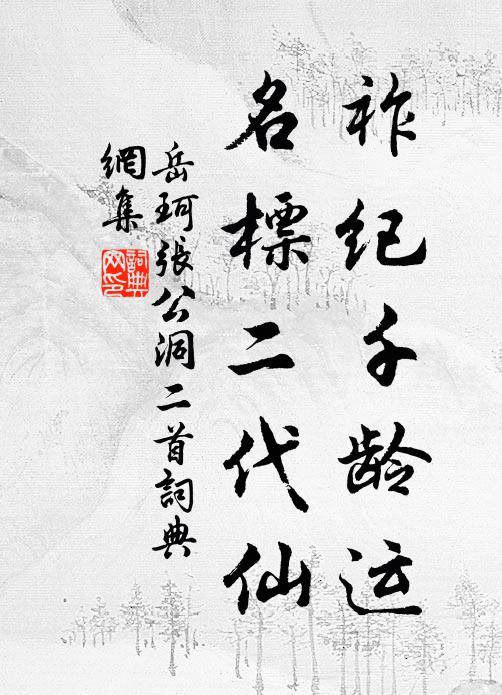 祚纪千龄运
名標二代仙
岳珂張公洞二首詞典
網集
詞典
网印